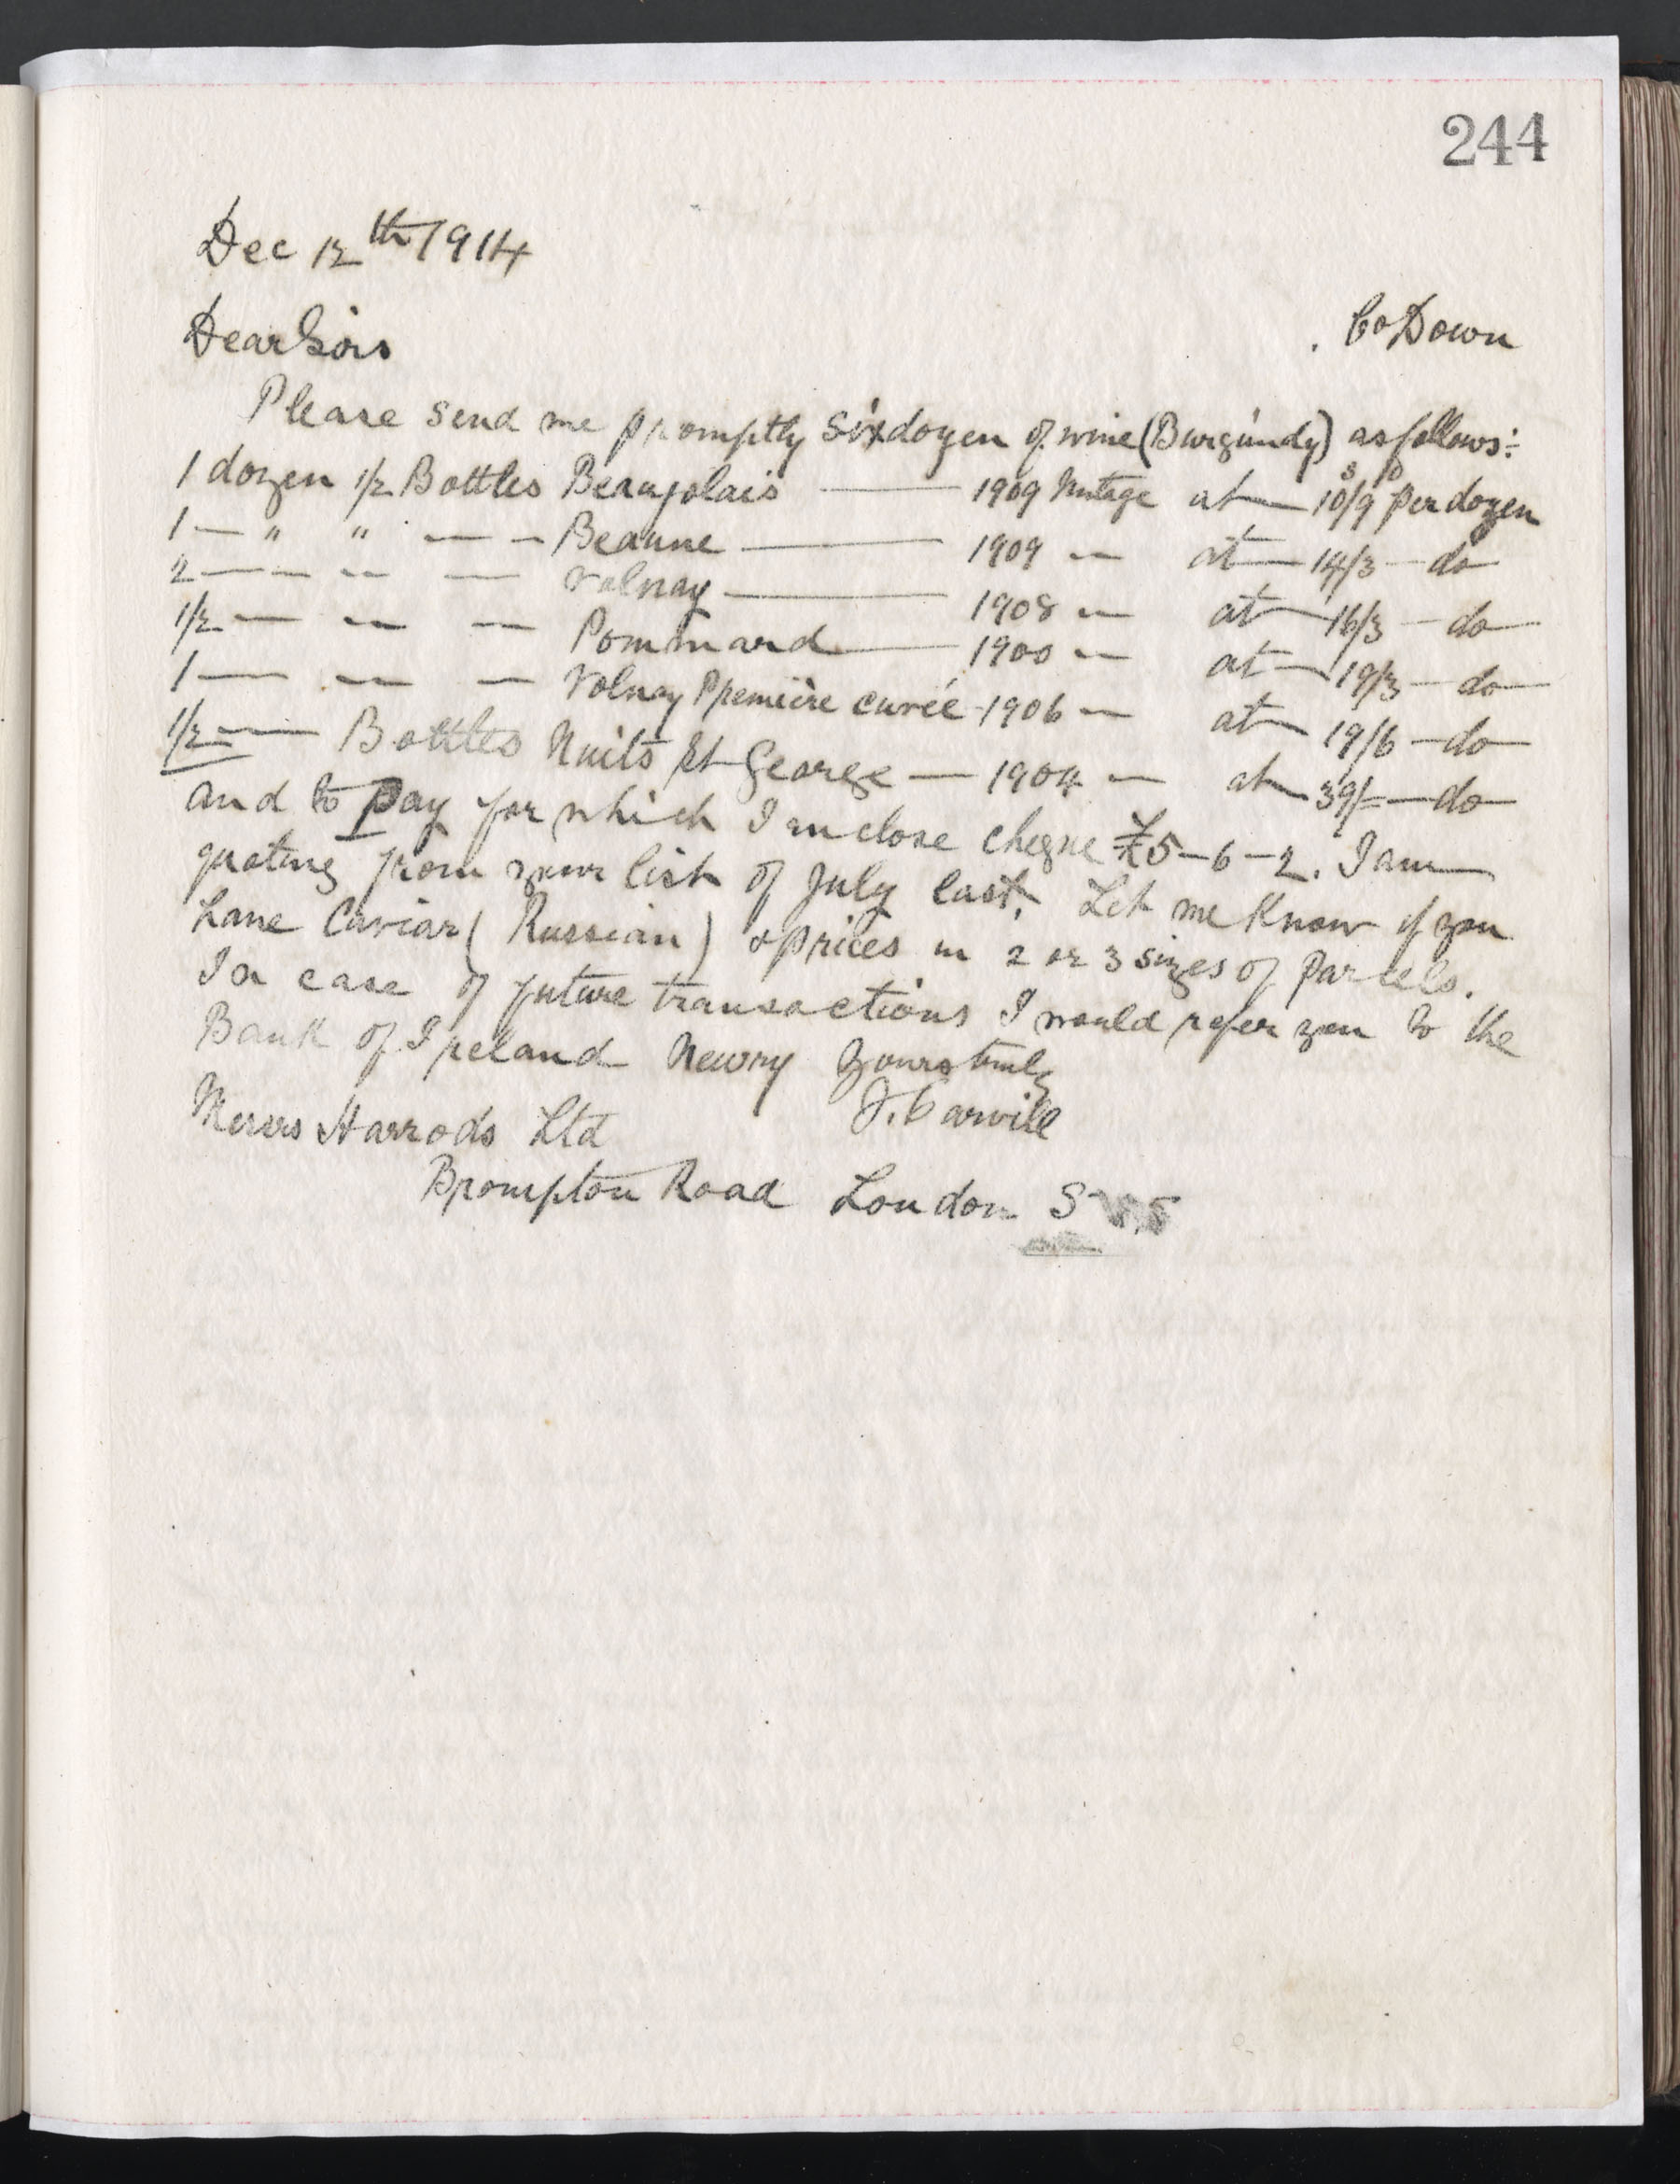 244
Dec 12th 1914
Dear Sirs
. Co Down
Please send me promptly six dozen of wine (Burgundy) as follows:-
1 dozen 1/2 Bottles Beaujolais — 1909 Vintage at — 10s/9d per dozen
1 — " " — — Beaune — 1909 — at — 14/3 — do
2 — — — Volnay — 1908 — at — 16/3 — do
1/2 — — — Pommard — 1900 — at — 19/3 — do
1 — — — Volnay Première cuvée 1906 — at — 19/6 — do
1/2 — Bottles Nuits St George — 1904 — at — 39/= — do
and to pay for which I enclose cheque £5-6-2. I am
quoting from your list of July last. Let me know if you
have Caviar (Russian) & prices in 2 or 3 sizes of parcels.
In case of future transactions I would refer you to the
Bank of Ireland Newry Yours truly
J. Carvill
Messrs Harrods Ltd
Brompton Road London S